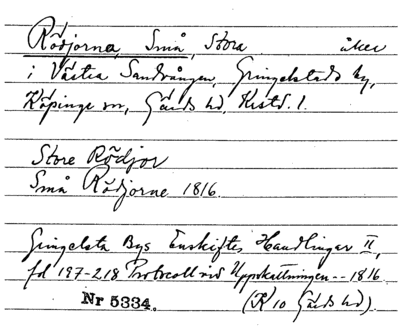 Rödjorna, Små, Stora åker
i Västra Sandvången, Gringelstads by,
Köpinge sn, Gärds hd, Kristd. l.
Store Rödjor
Små Rödjorne 1816.
Gringelsta Bys Enskiftes Handlingar II,
fol 197-218 Protocoll vid Uppskattningen -- 1816.
Nr 5334. (K 10 Gärds hd).